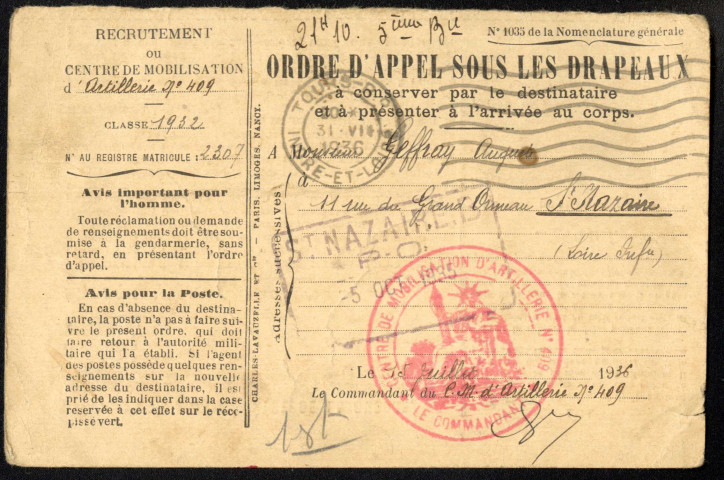 RECRUTEMENT
OU
CENTRE DE MOBILISATION
d'Artillerie N° 409
CLASSE 1932
N° AU REGISTRE MATRICULE : 2307
Avis important pour
l'homme.
Toute réclamation ou demande
de renseignements doit être sou-
mise à la gendarmerie, sans
retard, en présentant l'ordre
d'appel.
Avis pour la Poste.
En cas d'absence du destina-
taire, la poste n'a pas à faire sui-
vre le présent ordre, qui doit
faire retour à l'autorité mili-
taire qui l'a établi. Si l'agent
des postes possède quelques ren-
seignements sur la nouvelle
adresse du destinataire, il est
prié de les indiquer dans la case
réservée à cet effet sur le réce-
pissé vert.
CHARLES-LAVAUZELLE ET Cie — PARIS, LIMOGES, NANCY.
21 10. 5ème Bie
N° 1035 de la Nomenclature générale
ORDRE D'APPEL SOUS LES DRAPEAUX
à conserver par le destinataire
et à présenter à l'arrivée au corps.
TOURS
31 VII
1936
INDRE-ET-LOIRE
A Monsieur Jeffray Auguste
à
11 rue du Grand Ormeau St Nazaire
(Loire Infre)
Adresses successives
ST NAZAIRE
P.O.
5 OCT 1936
CENTRE DE MOBILISATION D'ARTILLERIE N° 409
LE COMMANDANT
Le Juillet 1936
Le Commandant du C.M. d'Artillerie N° 409